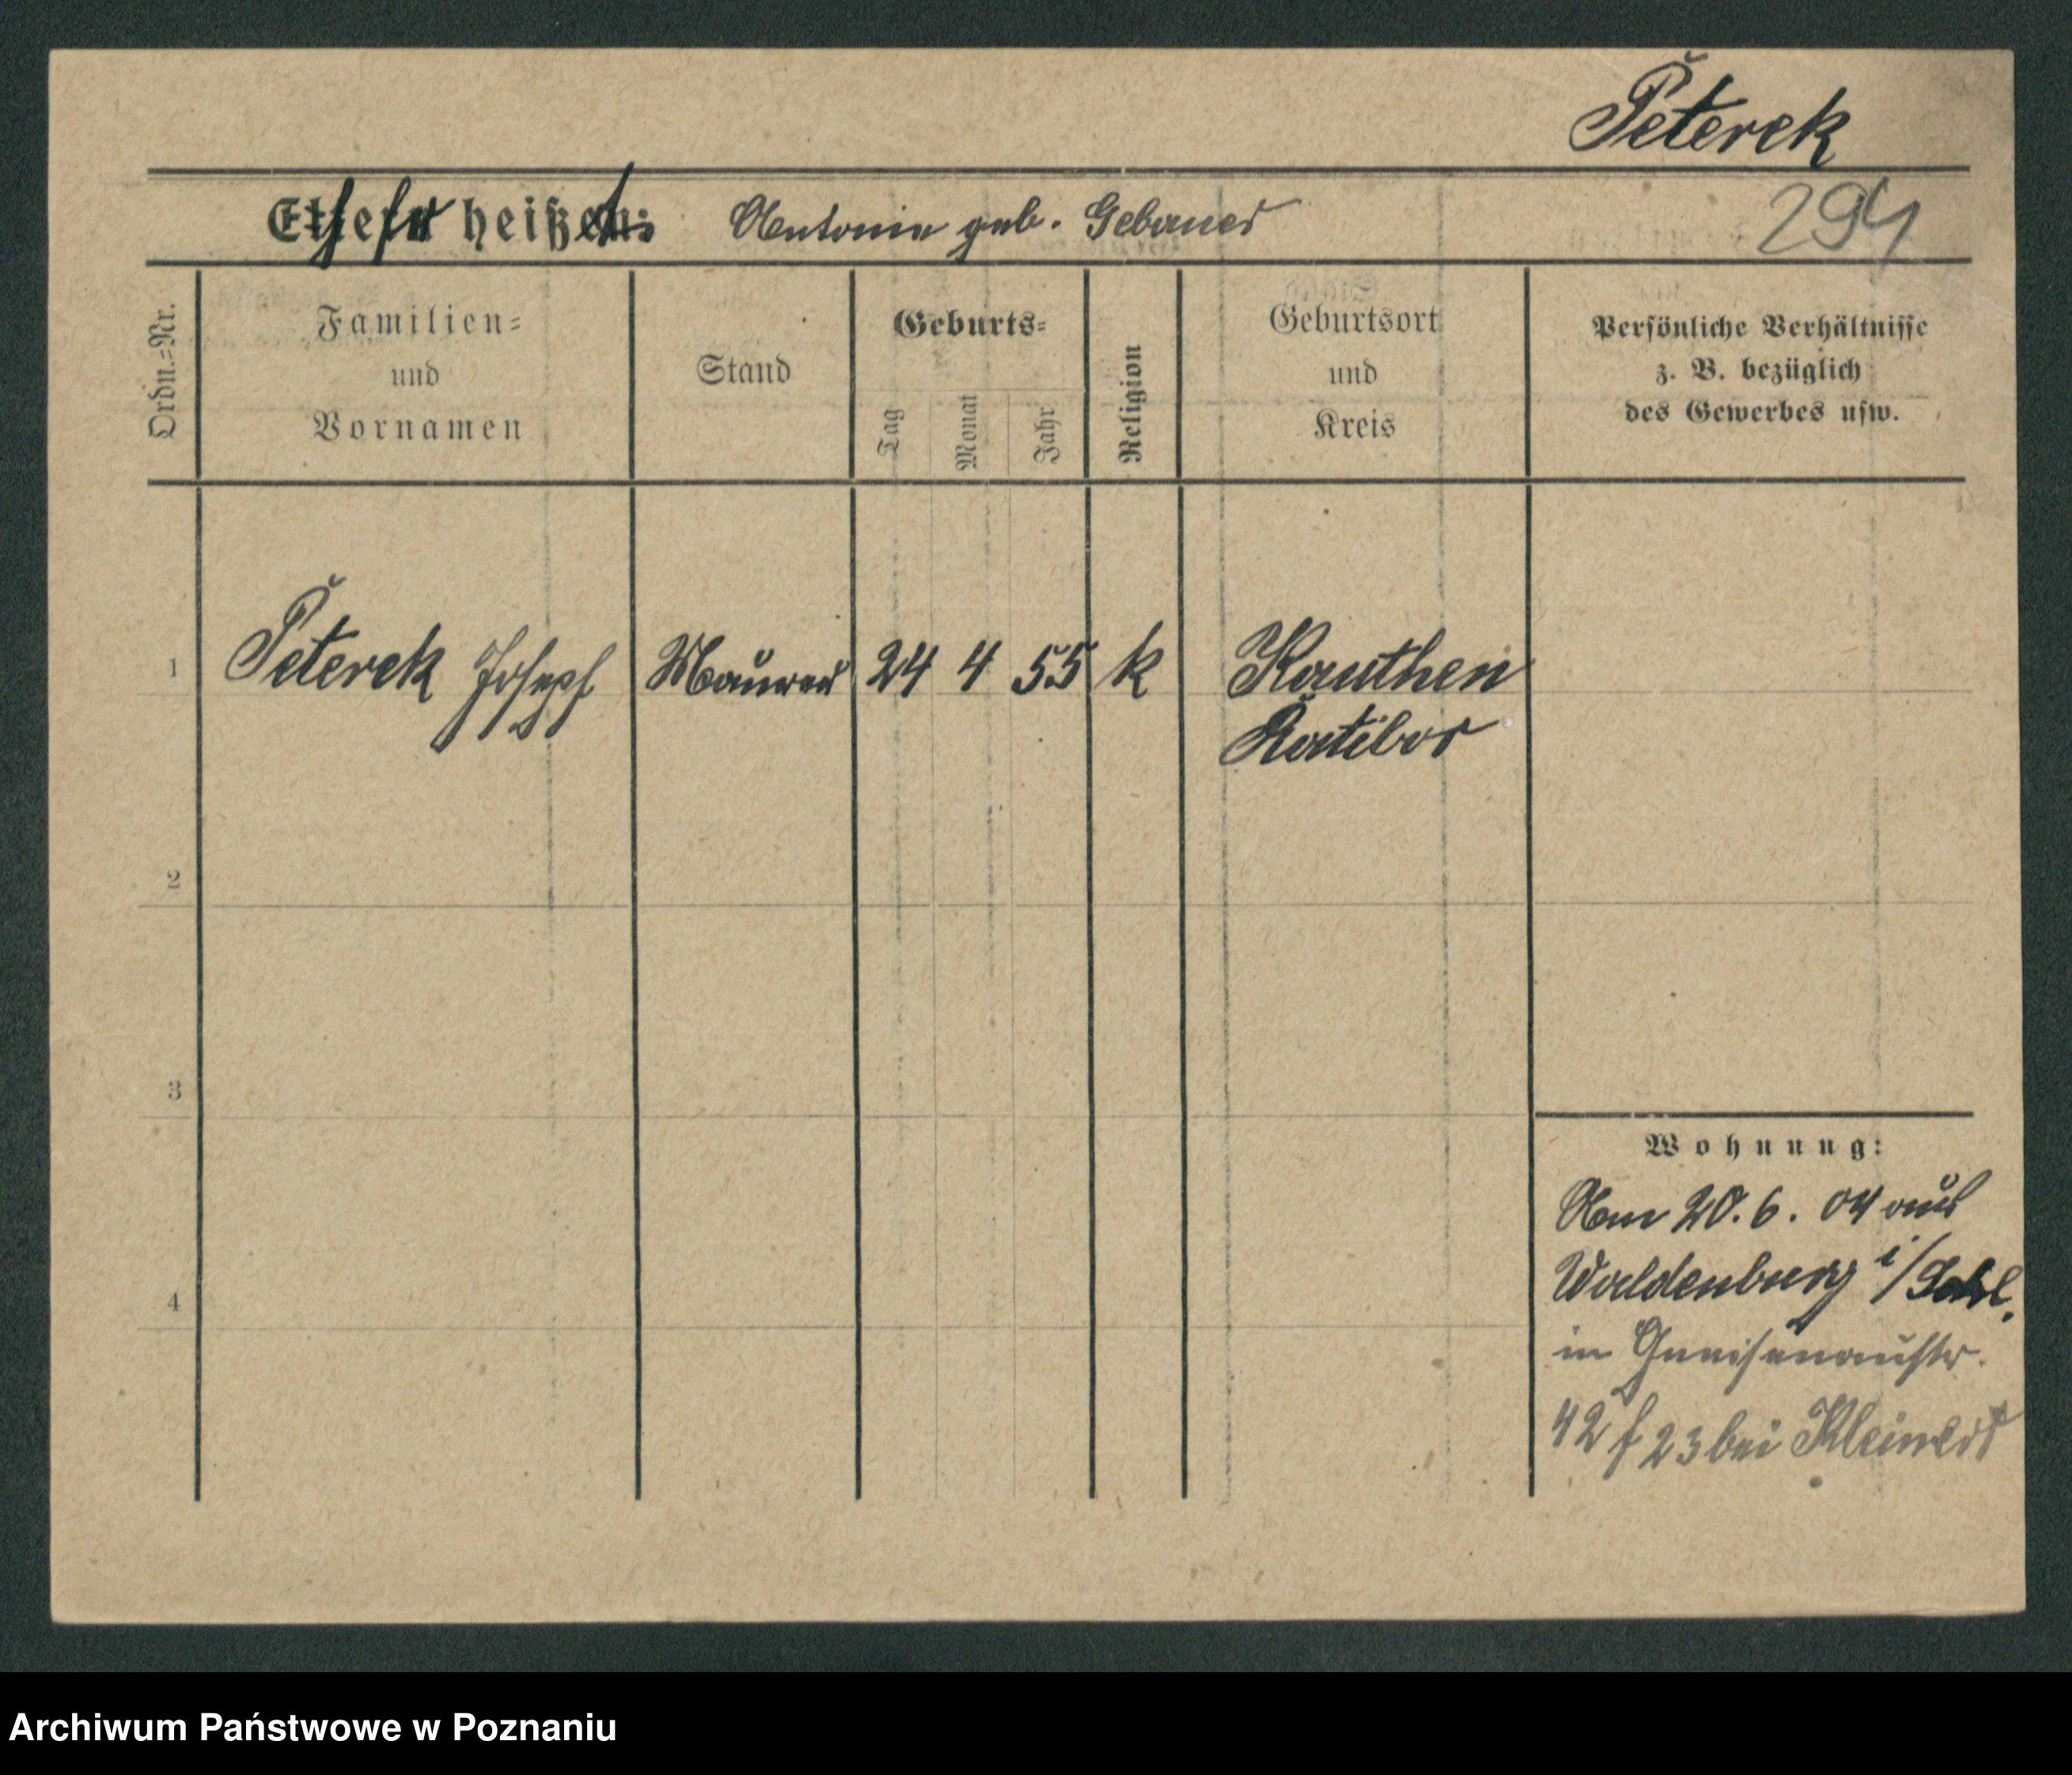 Peterek
Ehefr heißt: Antonie geb. Gebauer
294
Ordn.-Nr.
Familien-
und
Vornamen
Stand
Geburts-
Tag
Monat
Jahr
Religion
Geburtsort
und
Kreis
Persönliche Verhältnisse
z. B. bezüglich
des Gewerbes usw.
1 Peterek Joseph Maurer 24 4 55 k Kauthen
Ratibor
2
3
4
Wohnung:
Am 20. 6. 04 aus
Waldenburg i/Schl.
in Gneisenaustr.
42 f 23 bei Kleinert
Archiwum Państwowe w Poznaniu